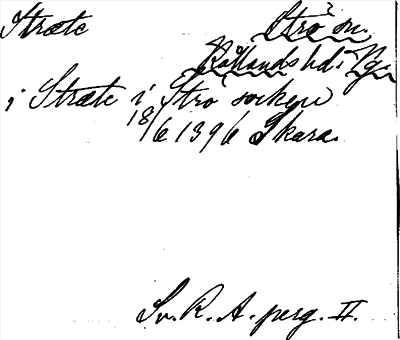 Stræte Strö sn.
Kållands hd. Vg.
i Stræte i Strö socken
18/6 1396 Skara.
Sv. R. A. perg. II.